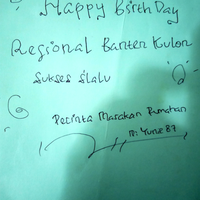 Happy BirthDay
Regional Banten Kulon
Sukses Slalu
Pecinta Marakan Rumahan
R: Yunus 87